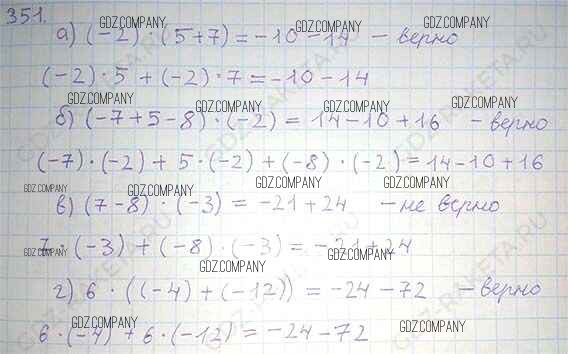 351.
GDZ.COMPANY GDZ.COMPANY GDZ.COMPANY
а) (-2) · (5+7) = -10 -14 - верно
(-2) · 5 + (-2) · 7 = -10 -14
GDZ.COMPANY GDZ.COMPANY GDZ.COMPANY GDZ.COMPANY
б) (-7+5-8) · (-2) = 14-10+16 - верно
(-7) · (-2) + 5 · (-2) + (-8) · (-2) = 14-10+16
GDZ.COMPANY GDZ.COMPANY GDZ.COMPANY GDZ.COMPANY
в) (7-8) · (-3) = -21+24 - не верно
7 · (-3) + (-8) · (-3) = -21+24
GDZ.COMPANY GDZ.COMPANY
г) 6 · ((-4) + (-12)) = -24 -72 - верно
GDZ.COMPANY GDZ.COMPANY GDZ.COMPANY
6 · (-4) + 6 · (-12) = -24 -72
GDZ.COMPANY GDZ.COMPANY
GDZ-RAKETA.RU
GDZ-RAKETA.RU
GDZ-RAKETA.RU
GDZ-RAKETA.RU